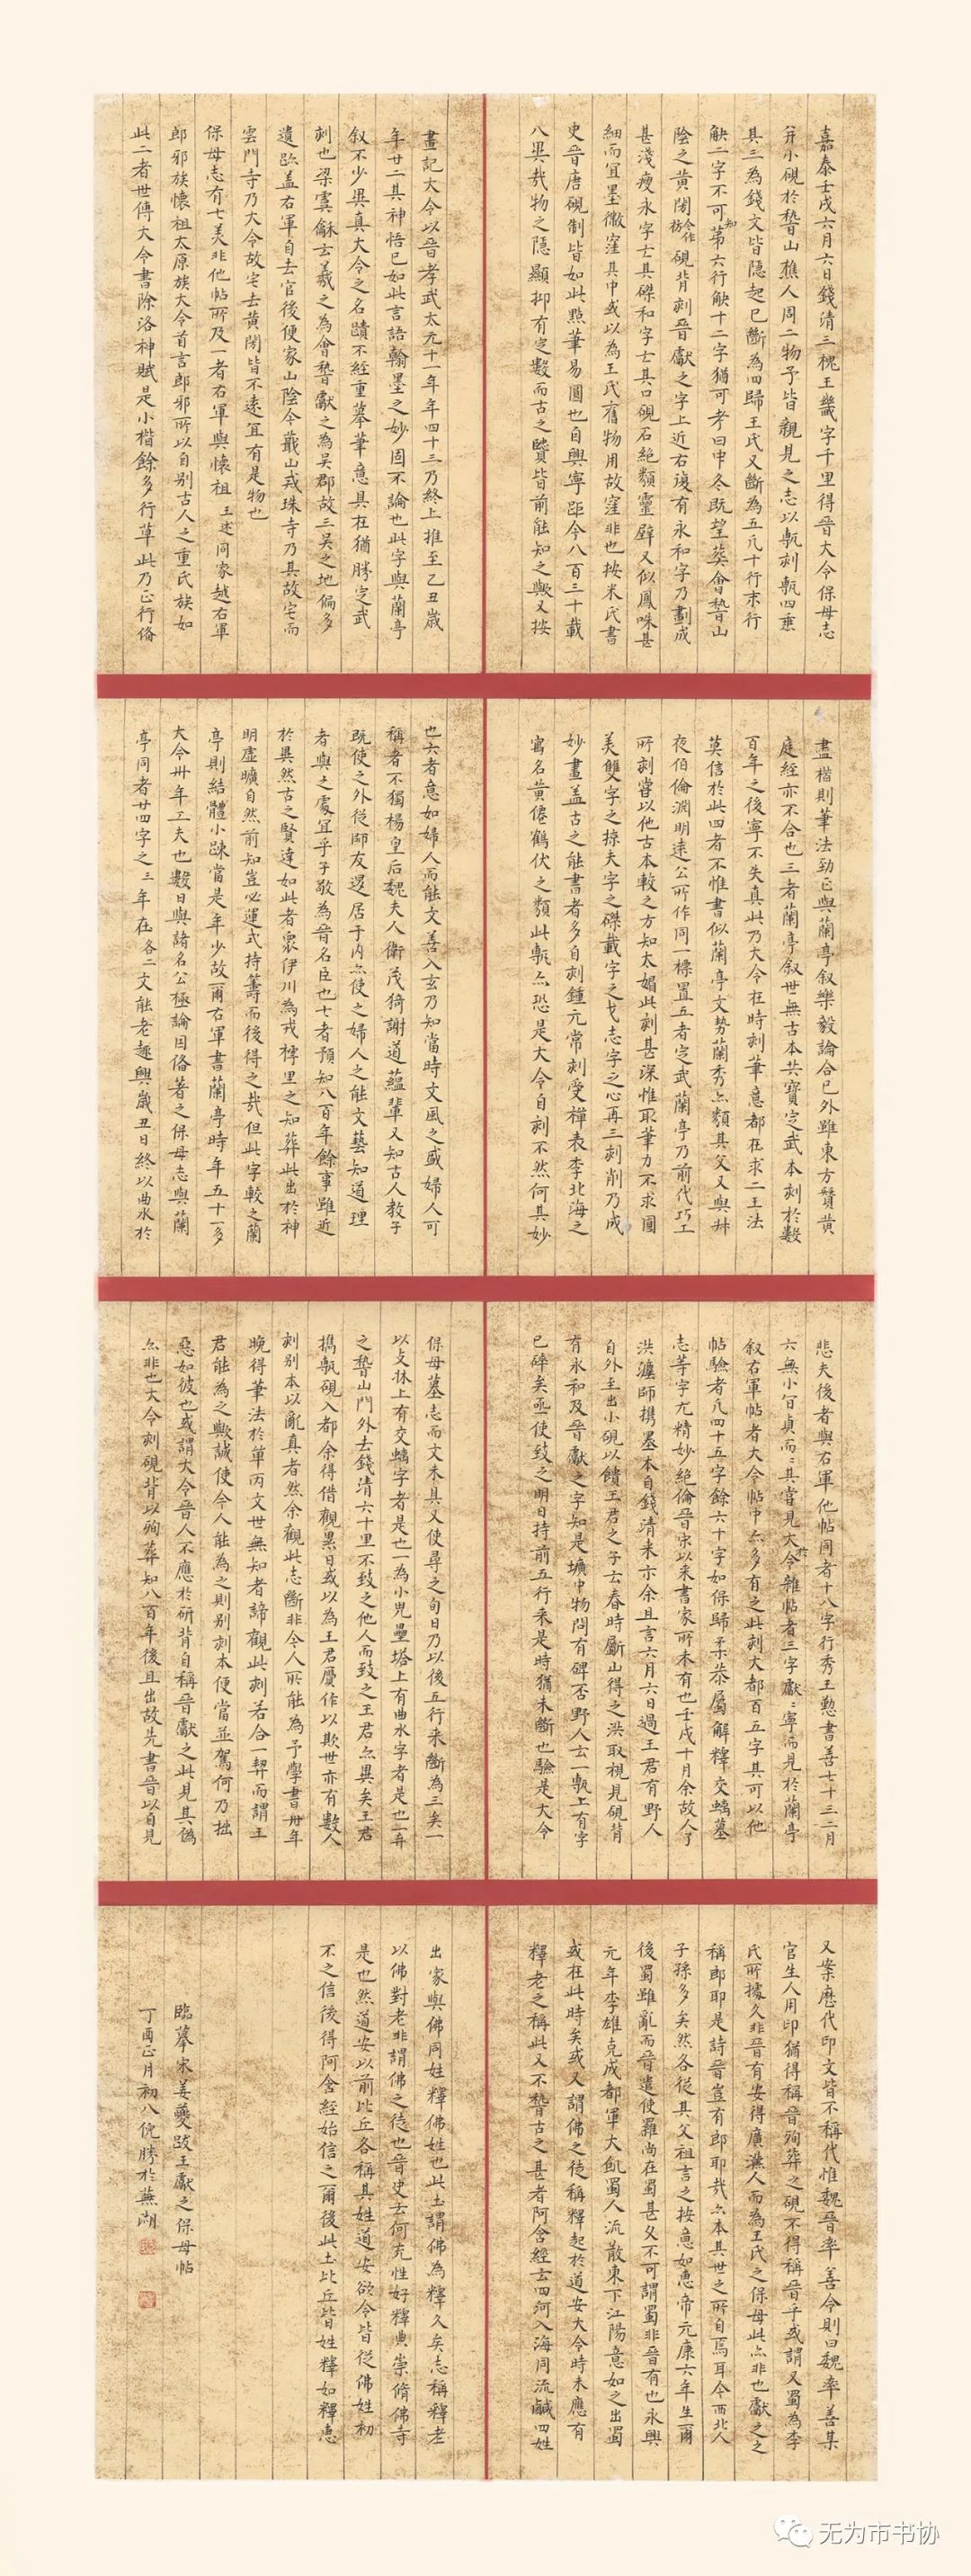 嘉泰壬戌六月六日錢清三槐王畿字千里得晉大令保母志
并小硯於稽山樵人周二物予皆親見之志以甎刻甎四垂
其三為錢文皆隱起已斷為四歸王氏又斷為五凡十行末行
缺二字不可知第六行缺十二字猶可考曰中冬既望葬會稽山
陰之黃閍今作枋硯背刻晉獻之字上近右復有永和字乃劃成
甚淺瘦永字亡其磔和字亡其口硯石絕類靈壁又似鳳咮甚
細而宜墨微窪其中或以為王氏舊物用故窪非也按米氏書
史晉唐硯制皆如此點筆易圓也自興寧距今八百三十載
八異哉物之隱顯抑有定數而古之賢皆前能知之歟又按
畫記大令以晉孝武太元十一年年四十三乃終上推至乙丑歲
年廿二其神悟已如此言語翰墨之妙固不論也此字與蘭亭
叙不少異真大令之名蹟不經重摹筆意具在猶勝定武
刻也梁虞龢云羲之為會稽獻之為吳郡故三吳之地偏多
遺跡蓋右軍自去官後便家山陰今蕺山戒珠寺乃其故宅而
雲門寺乃大令故宅去黃閍皆不遠宜有是物也
保母志有七美非他帖所及一者右軍與懷祖王述同家越右軍
郎邪族懷祖太原族大令首言郎邪所以自別古人之重氏族如
此二者世傳大令書除洛神賦是小楷餘多行草此乃正行俻
盡楷則筆法勁正與蘭亭叙樂毅論合已外雖東方贊黃
庭經亦不合也三者蘭亭叙世無古本共寶定武本刻於數
百年之後寧不失真此乃大令在時刻筆意都在求二王法
莫信於此四者不惟書似蘭亭文勢蘭秀亦類其父又與叔
夜伯倫淵明遠公所作同一標置五者定武蘭亭乃前代巧工
所刻嘗以他古本較之方知太媚此刻甚深惟取筆力不求圓
美雙字之捺夫字之磔載字之戈志字之心再三刻削乃成
妙畫蓋古之能書者多自刻鍾元常刻受禪表李北海之
寫名黃僊鶴伏之類此甎亦恐是大令自刻不然何其妙
也六者意如婦人而能文善入玄乃知當時文風之盛婦人可
稱者不獨楊皇后魏夫人衛茂猗謝道蘊輩又知古人教子
既使之外從師友還居于內亦使之婦人之能文藝知道理
者與之處宜乎子敬為晉名臣也七者預知八百年餘事雖近
於異然古之賢達如此者眾伊川為戎樗里之知葬此出於神
明虛曠自然前知豈必運式持籌而後得之哉但此字較之蘭
亭則結體小踈當是年少故爾右軍書蘭亭時年五十一多
大令卅年工夫也數日與諸名公極論因俻著之保母志與蘭
亭同者廿四字之三年在各二文能老趣興歲丑日終以曲水於
悲夫後者與右軍他帖同者十八字行秀王懃書善七十三二月
六無小百貞而〻其嘗見於大令雜帖者三字獻〻寧而見於蘭亭
叙右軍帖者大令帖中亦多有之此刻大都百五字其可以他
帖驗者凡四十五字餘六十字如保歸柔恭屬解釋交螭墓
志等字尤精妙絕倫晉宋以来書家所未有也壬戌十月余故人了
洪濂師携墨本自錢清来示余且言六月六日過王君有野人
自外至出小硯以饋王君之子云春時斸山得之洪取視見硯背
有永和及晉獻之字知是壙中物問有碑否野人云一甎上有字
已碎矣亟使致之明日持前五行来是時猶未斷也驗是大令
保母墓志而文未具又使尋之旬日乃以後五行来斷為三矣一
以攴牀上有交螭字者是也一為小兒壘塔上有曲水字者是也二弃
之稽山門外去錢清六十里不致之他人而致之王君亦異矣王君
攜甎硯入都余得借觀累日或以為王君贋作以欺世亦有數人
刻別本以亂真者然余觀此志斷非今人所能為予學書卅年
晚得筆法於單丙文世無知者諦觀此刻若合一契而謂王
君能為之歟誠使今人能為之則別刻本便當並駕何乃拙
惡如彼也或謂大令晉人不應於研背自稱晉獻之此見其偽
亦非也大令刻硯背以殉葬知八百年後且出故先書晉以自見
又案歷代印文皆不稱代惟魏晉率善令則曰魏率善某
官生人用印猶得稱晉殉葬之硯不得稱晉乎或謂又蜀為李
氏所據久非晉有安得廣漢人而為王氏之保母此亦非也獻之之
稱郎耶是詩晉豈有郎耶哉亦本其世之所自焉耳今西北人
子孫多矣然各從其父祖言之按意如惠帝元康六年生爾
後蜀雖亂而晉遣使羅尚在蜀甚久不可謂蜀非晉有也永興
元年李雄克成都軍大飢蜀人流散東下江陽意如之出蜀
或在此時矣或又謂佛之徒稱釋起於道安大令時未應有
釋老之稱此又不稽古之甚者阿含經云四河入海同流鹹四姓
出家與佛同姓釋佛姓也此土謂佛為釋久矣志稱釋老
以佛對老非謂佛之徒也晉史云何充性好釋典崇脩佛寺
是也然道安以前比丘各稱其姓道安欲令皆從佛姓初
不之信後得阿含經始信之爾後此土比丘皆姓釋如釋惠
臨摹宋姜夔跋王獻之保母帖
丁酉正月初八倪勝於蕪湖
无为市书协